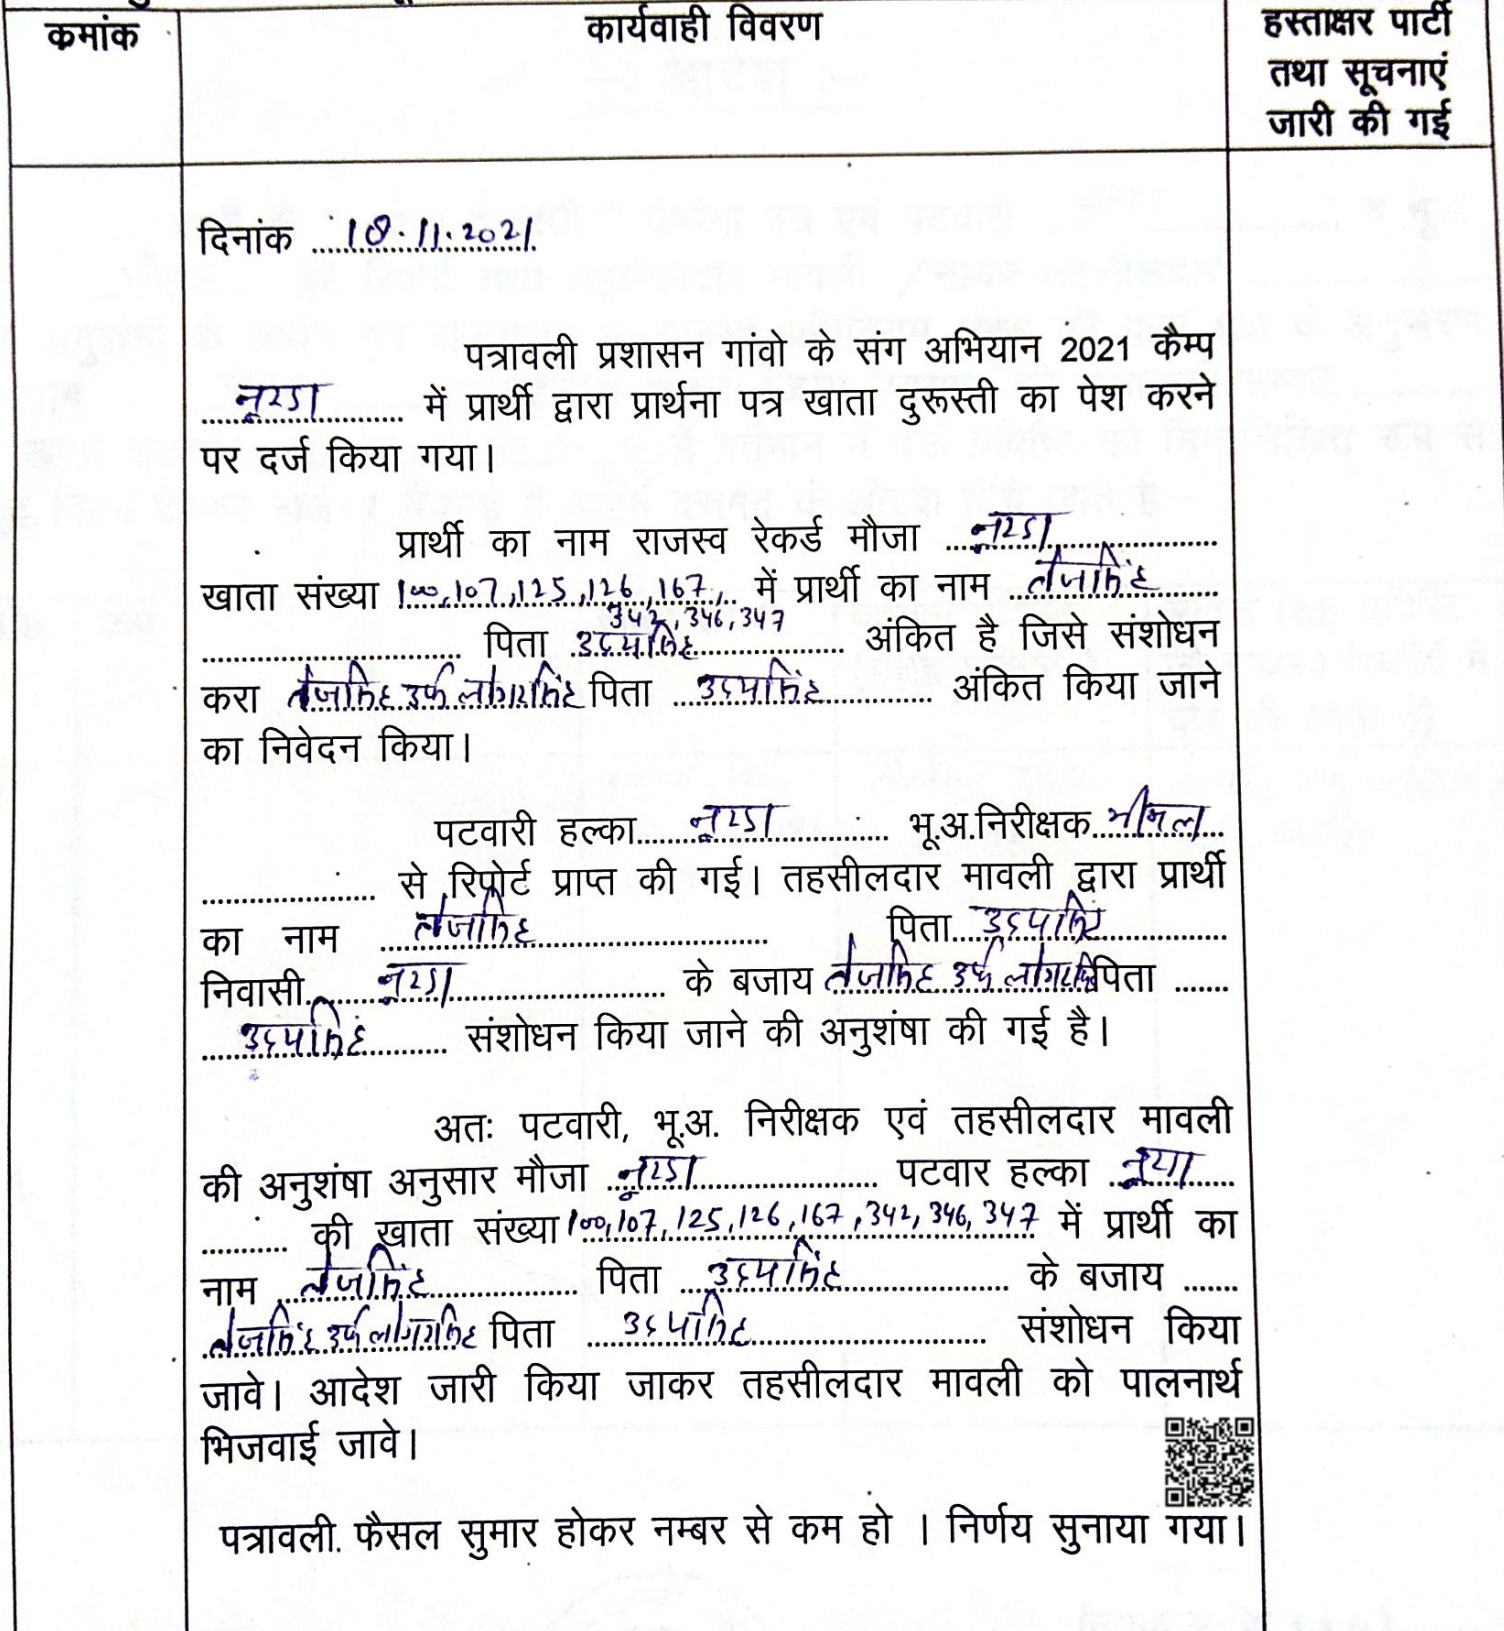 क्रमांक
कार्यवाही विवरण
हस्ताक्षर पार्टी
तथा सूचनाएं
जारी की गई
दिनांक 18.11.2021
पत्रावली प्रशासन गांवो के संग अभियान 2021 कैम्प
नूरडा में प्रार्थी द्वारा प्रार्थना पत्र खाता दुरूस्ती का पेश करने
पर दर्ज किया गया।
प्रार्थी का नाम राजस्व रेकर्ड मौजा नूरडा
खाता संख्या 100,107,125,126,167, में प्रार्थी का नाम तेजसिंह
342,346,347
पिता उदयसिंह अंकित है जिसे संशोधन
करा तेजसिंह उर्फ पिता उदयसिंह अंकित किया जाने
का निवेदन किया।
पटवारी हल्का नूरडा भू.अ.निरीक्षक भीमल
से रिपोर्ट प्राप्त की गई। तहसीलदार मावली द्वारा प्रार्थी
का नाम तेजसिंह पिता उदयसिंह
निवासी नूरडा के बजाय तेजसिंह उर्फ पिता
उदयसिंह संशोधन किया जाने की अनुशंषा की गई है।
अतः पटवारी, भू.अ. निरीक्षक एवं तहसीलदार मावली
की अनुशंषा अनुसार मौजा नूरडा पटवार हल्का नूरडा
की खाता संख्या 100,107,125,126,167,342,346,347 में प्रार्थी का
नाम तेजसिंह पिता उदयसिंह के बजाय
तेजसिंह उर्फ पिता उदयसिंह संशोधन किया
जावे। आदेश जारी किया जाकर तहसीलदार मावली को पालनार्थ
भिजवाई जावे।
पत्रावली. फैसल सुमार होकर नम्बर से कम हो । निर्णय सुनाया गया।